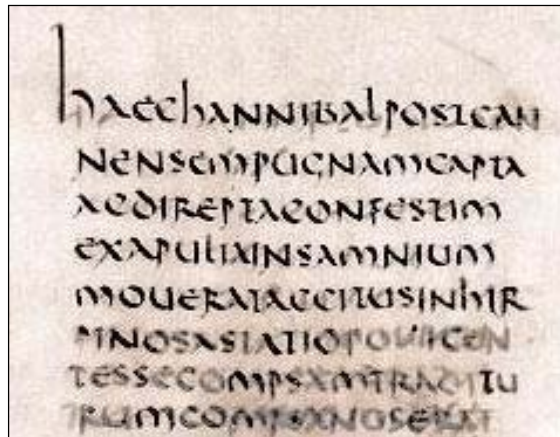 hAEChANNIBALPOSTCAN
NENSEMPUGNAMCAPTA
ACDIREPTACONFESTIM
EXAPULIAINSAMNIUM
MOUERATACCITUSINhIR
PINOSASTATIOPOLLICEN
TESSECOMPSAMTRADITU
RUMCOMPSANOSERAT